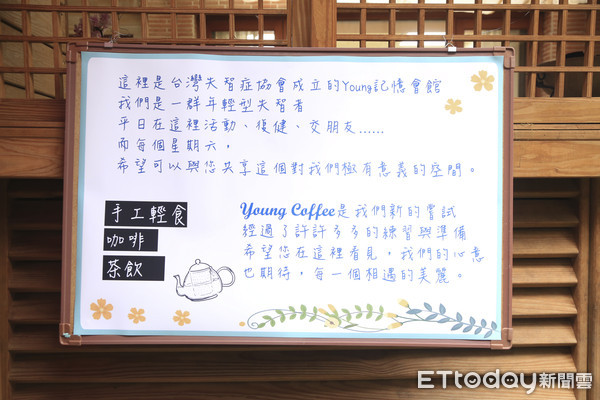 這裡是台灣失智症協會成立的Young記憶會館
我們是一群年輕型失智者
平日在這裡活動、復健、交朋友......
而每個星期六，
希望可以與您共享這個對我們極有意義的空間。
手工輕食
咖啡
茶飲
Young Coffee是我們新的嘗試
經過了許許多多的練習與準備
希望您在這裡看見，我們的心意
也期待，每一個相遇的美麗。
ETtoday新聞雲